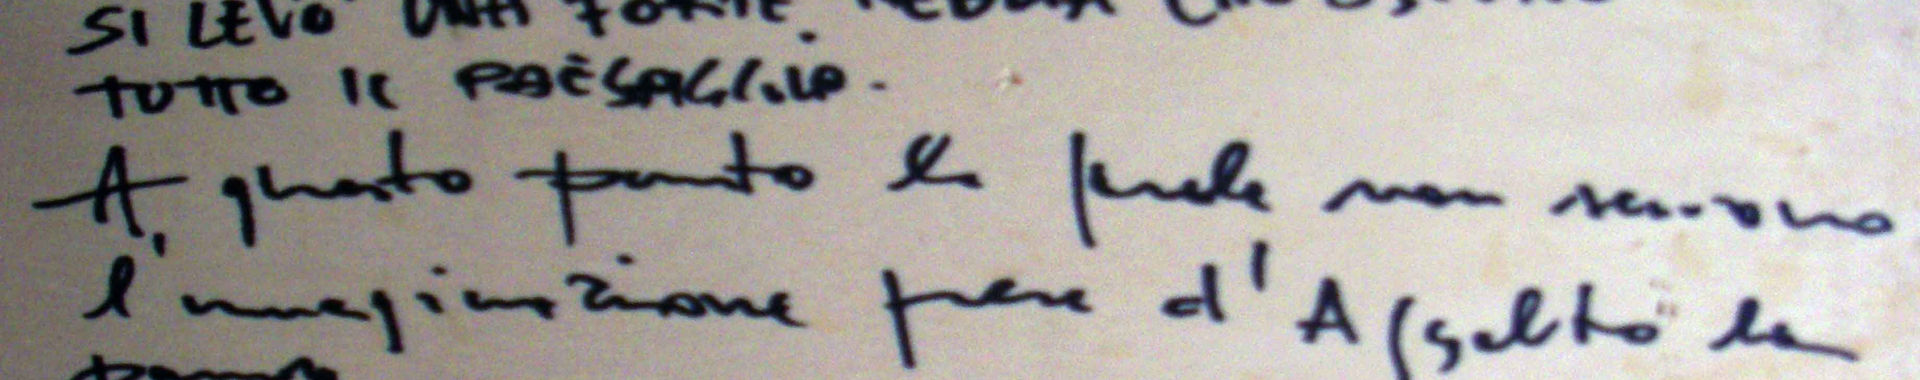 SI LEVÒ UNA FORTE
TUTTO IL PAESAGGIO.
A questo punto le parole non servono
l'immaginazione prese d'Assalto la